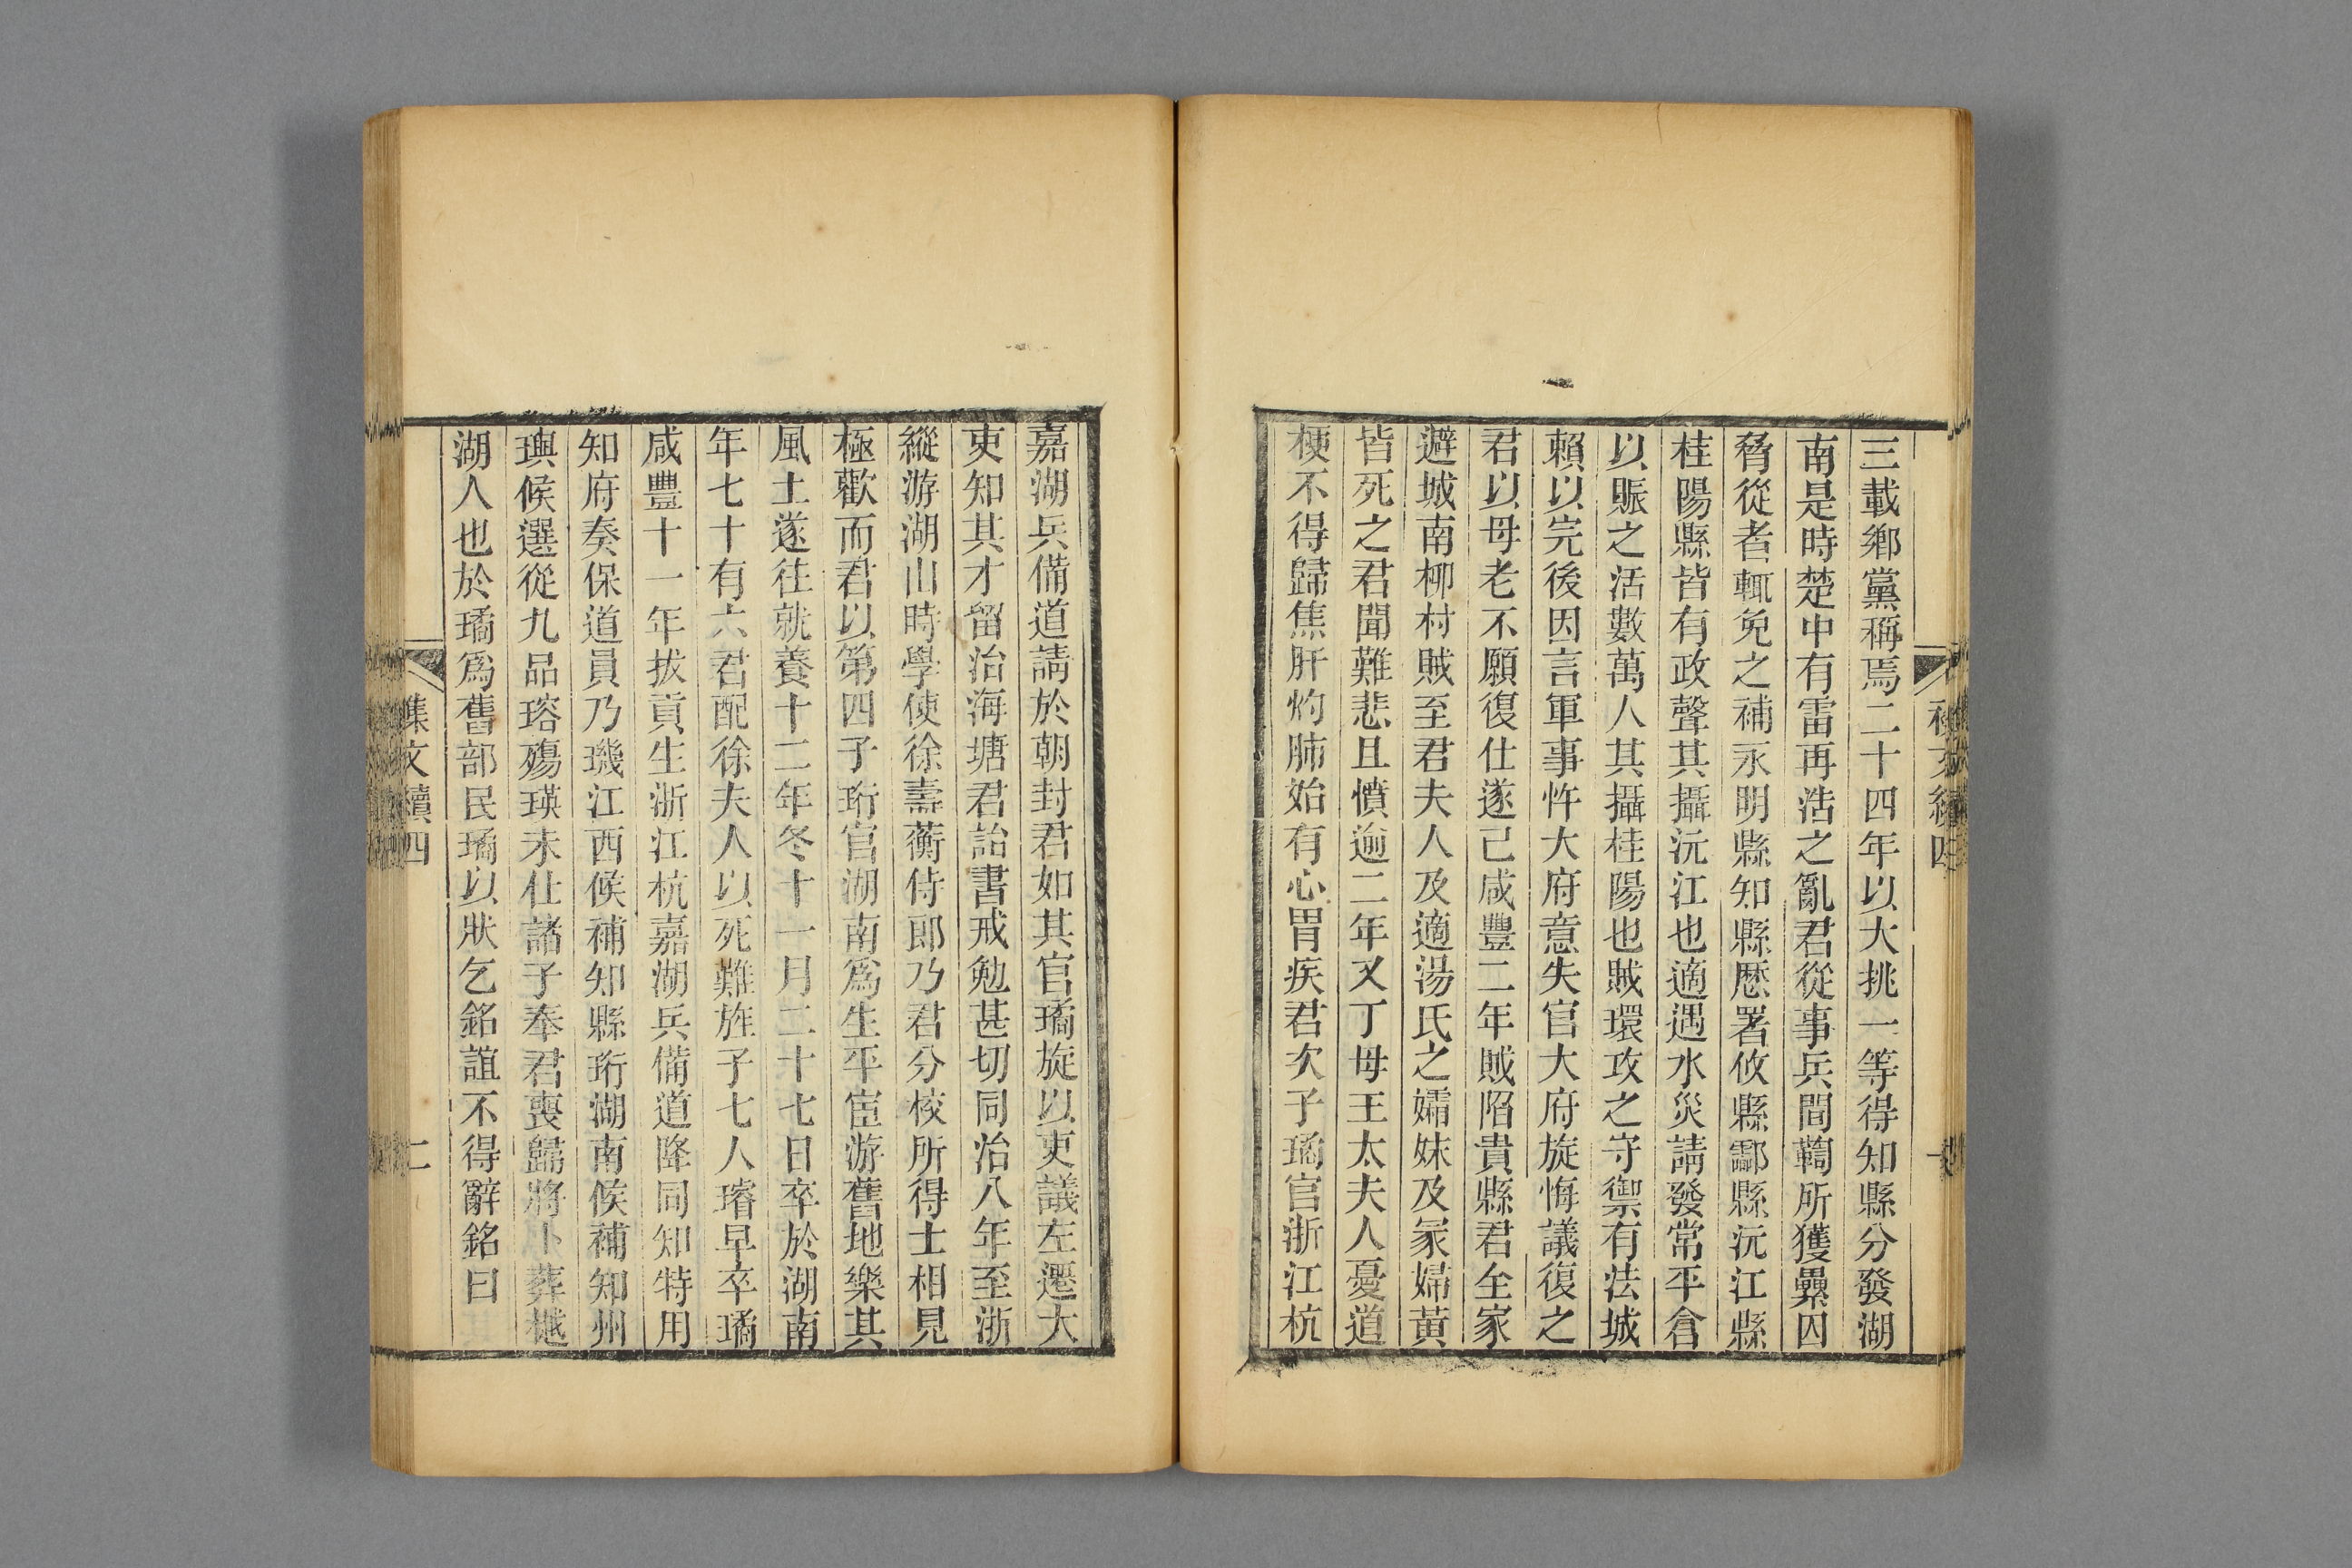 三載鄉黨稱焉二十四年以大挑一等得知縣分發湖
南是時楚中有雷再浩之亂君從事兵間鞫所獲纍囚
脅從者輒免之補永明縣知縣歷署攸縣酃縣沅江縣
桂陽縣皆有政聲其攝沅江也適遇水災請發常平倉
以賑之活數萬人其攝桂陽也賊環攻之守禦有法城
賴以完後因言軍事忤大府意失官大府旋悔議復之
君以母老不願復仕遂已咸豐二年賊陷貴縣君全家
避城南柳村賊至君夫人及適湯氏之孀妹及冢婦黃
皆死之君聞難悲且憤逾二年又丁母王太夫人憂道
梗不得歸焦肝灼肺始有心胃疾君次子璚官浙江杭
嘉湖兵備道請於朝封君如其官璚旋以吏議左遷大
吏知其才留治海塘君詒書戒勉甚切同治八年至浙
縱游湖山時學使徐壽蘅侍郎乃君分校所得士相見
極歡而君以第四子珩官湖南爲生平宦游舊地樂其
風土遂往就養十二年冬十一月二十七日卒於湖南
年七十有六君配徐夫人以死難旌子七人璿早卒璚
咸豐十一年拔貢生浙江杭嘉湖兵備道降同知特用
知府奏保道員乃璣江西候補知縣珩湖南候補知州
璵候選從九品瑢殤瑛未仕諸子奉君喪歸將卜葬樾
湖人也於璚爲舊部民璚以狀乞銘誼不得辭銘曰
集文續四